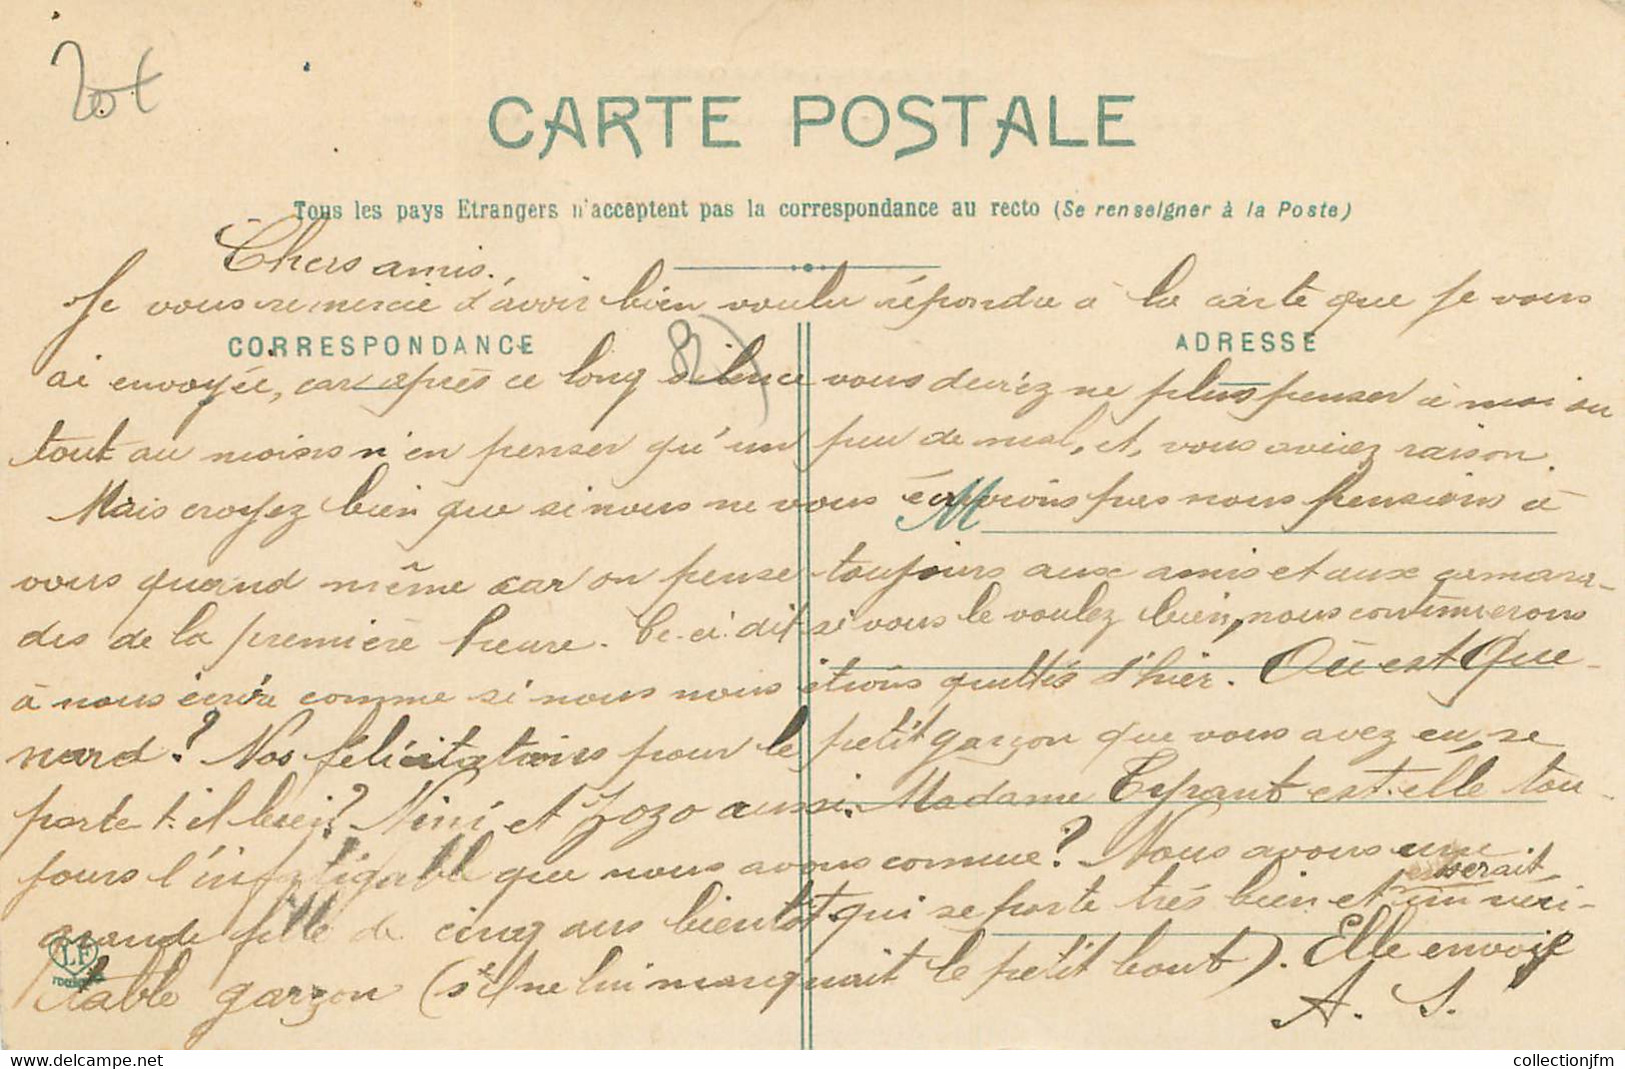 Lot
CARTE POSTALE
Tous les pays Etrangers n'acceptent pas la correspondance au recto (Se renseigner à la Poste)
Chers amis.
Je vous remercie d'avoir bien voulu répondre à la carte que je vous
CORRESPONDANCE
82
ADRESSE
ai envoyée, car après ce long silence vous deviez ne plus penser à moi ou
tout au moins n'en penser qu'un peu de mal, et, vous aviez raison.
Mais croyez bien que si nous ne vous écrivions pas nous pensions à
M
vous quand même car on pense toujours aux amis et aux camara-
des de la première heure. Ce-ci dit si vous le voulez bien, nous continuerons
à nous écrire comme si nous nous étions quittés d'hier. Où est Que-
nard? Nos félicitations pour le petit garçon que vous avez eu, se
porte t-il bien? Nini et Zozo aussi. Madame est-elle tou-
jours l'infatigable que nous avons connue? Nous avons une
serait
grande fille de cinq ans bientôt qui se porte très bien et un véri-
LF
table garçon (s'il ne lui manquait le petit bout). Elle envoie
A. S.
collectionjfm